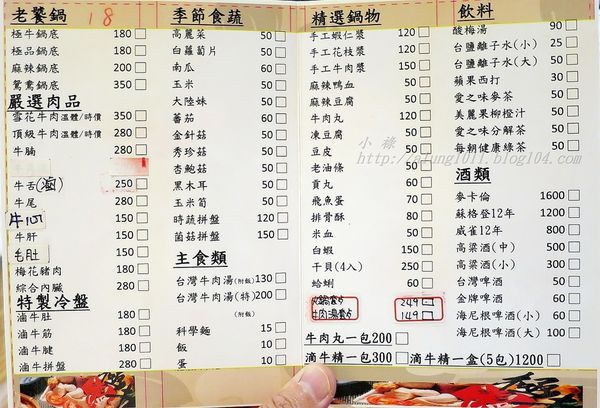 老饕鍋 18
極牛鍋底 180
極品鍋底 180
麻辣鍋底 200
鴛鴦鍋底 350
嚴選肉品
雪花牛肉溫體/時價 350
頂級牛肉溫體/時價 280
牛腩 280
牛舌(滷) 250
牛尾 280
牛心 150
牛肝 150
毛肚 150
梅花豬肉 180
綜合內臟 280
特製冷盤
滷牛肚 180
滷牛筋 180
滷牛腱 280
滷牛拼盤 280
季節食蔬
高麗菜 50
白蘿蔔片 50
南瓜 60
玉米 50
大陸妹 50
蕃茄 60
金針菇 50
秀珍菇 50
杏鮑菇 50
黑木耳 50
玉米筍 50
時蔬拼盤 120
菌菇拼盤 150
主食類
台灣牛肉湯(附飯) 130
台灣牛肉湯(特) 200
(附飯)
科學麵 15
飯 10
蛋 10
精選鍋物
手工蝦仁漿 120
手工花枝漿 120
手工牛肉漿 150
麻辣鴨血 50
麻辣豆腐 50
牛肉丸 120
凍豆腐 50
豆皮 50
老油條 50
貢丸 50
飛魚蛋 70
排骨酥 80
米血 50
白蝦 150
干貝(4入) 250
蛤蜊 60
249
牛肉湯套餐 149
牛肉丸一包200
滴牛精一包300
滴牛精一盒(5包)1200
飲料
酸梅湯 90
台鹽離子水(小) 25
台鹽離子水(大) 50
蘋果西打 30
愛之味麥茶 50
美麗果柳橙汁 50
愛之味分解茶 50
每朝健康綠茶 50
酒類
麥卡倫 1600
蘇格登12年 1200
威雀12年 800
高粱酒(中) 500
高粱酒(小) 300
台灣啤酒 50
金牌啤酒 50
海尼根啤酒(小) 60
海尼根啤酒(大) 100
小祿
http://ajung1011.blog104.com